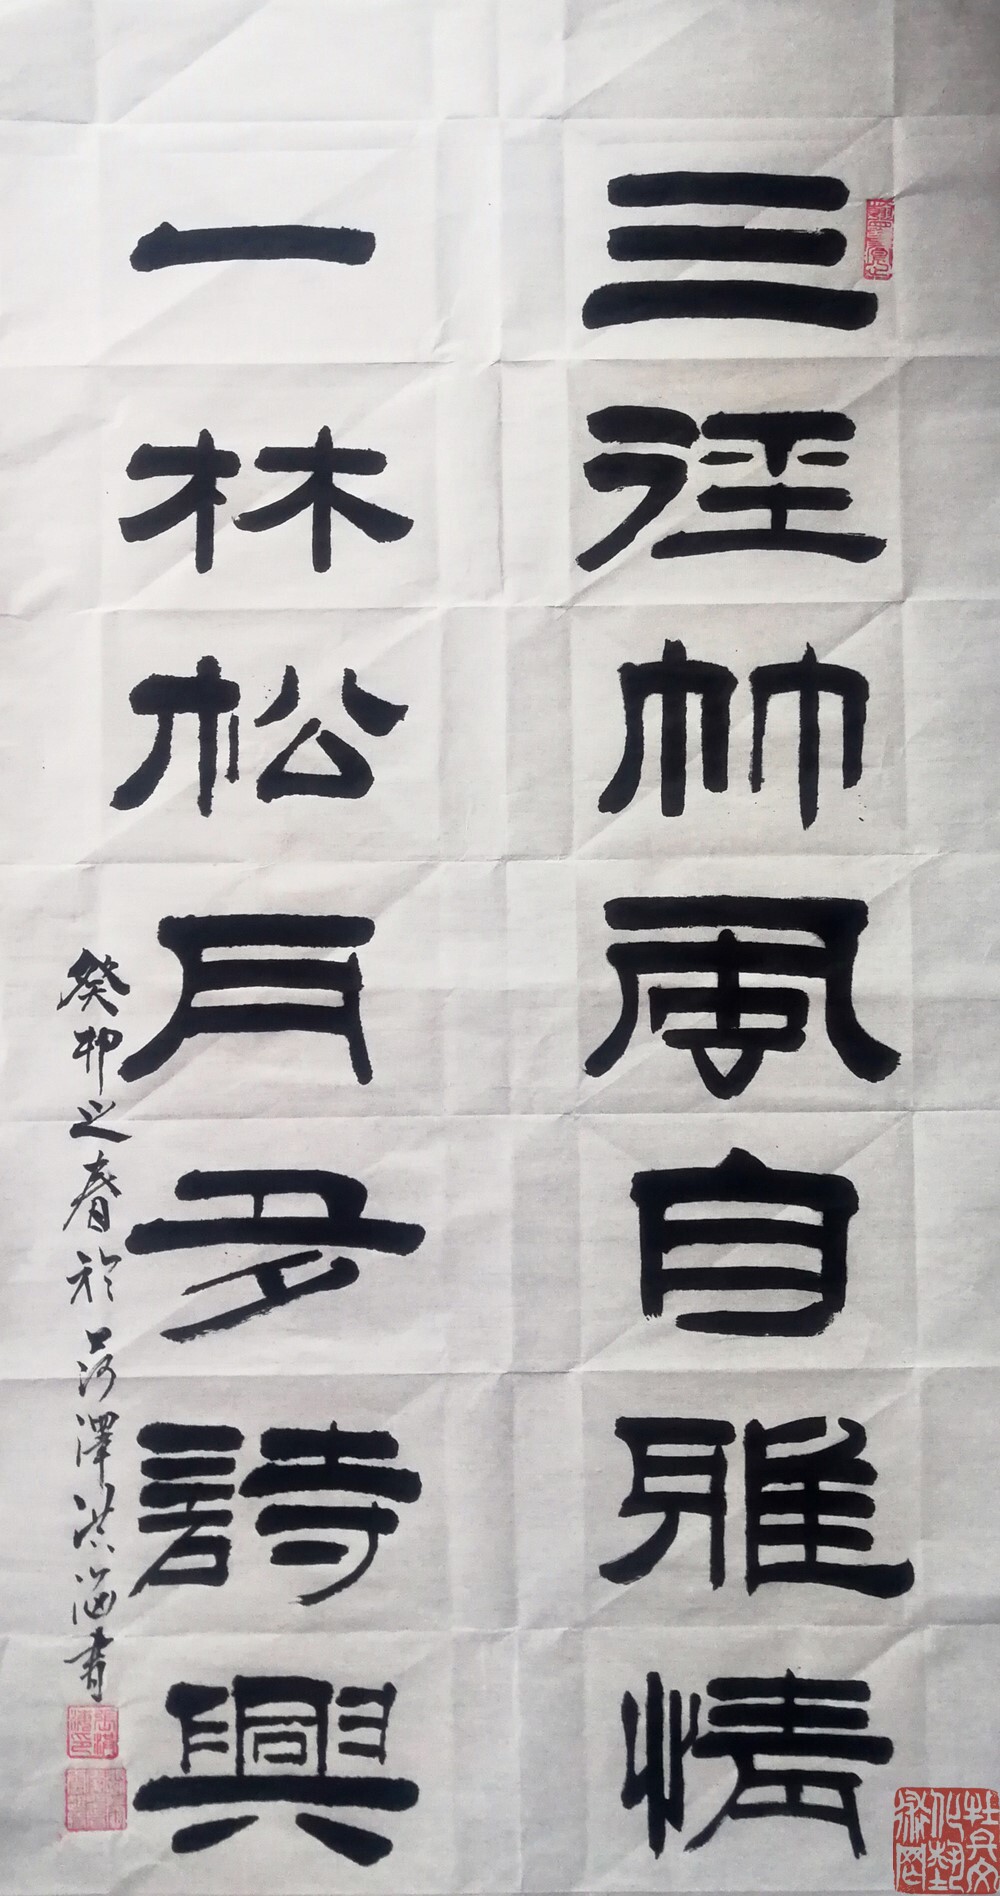 三徑竹風自雅情
一林松月多詩興
癸卯之春於菏澤洪海書